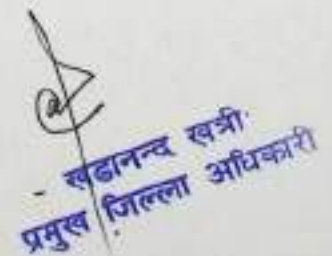 - खड्गानन्द खत्री
प्रमुख जिल्ला अधिकारी